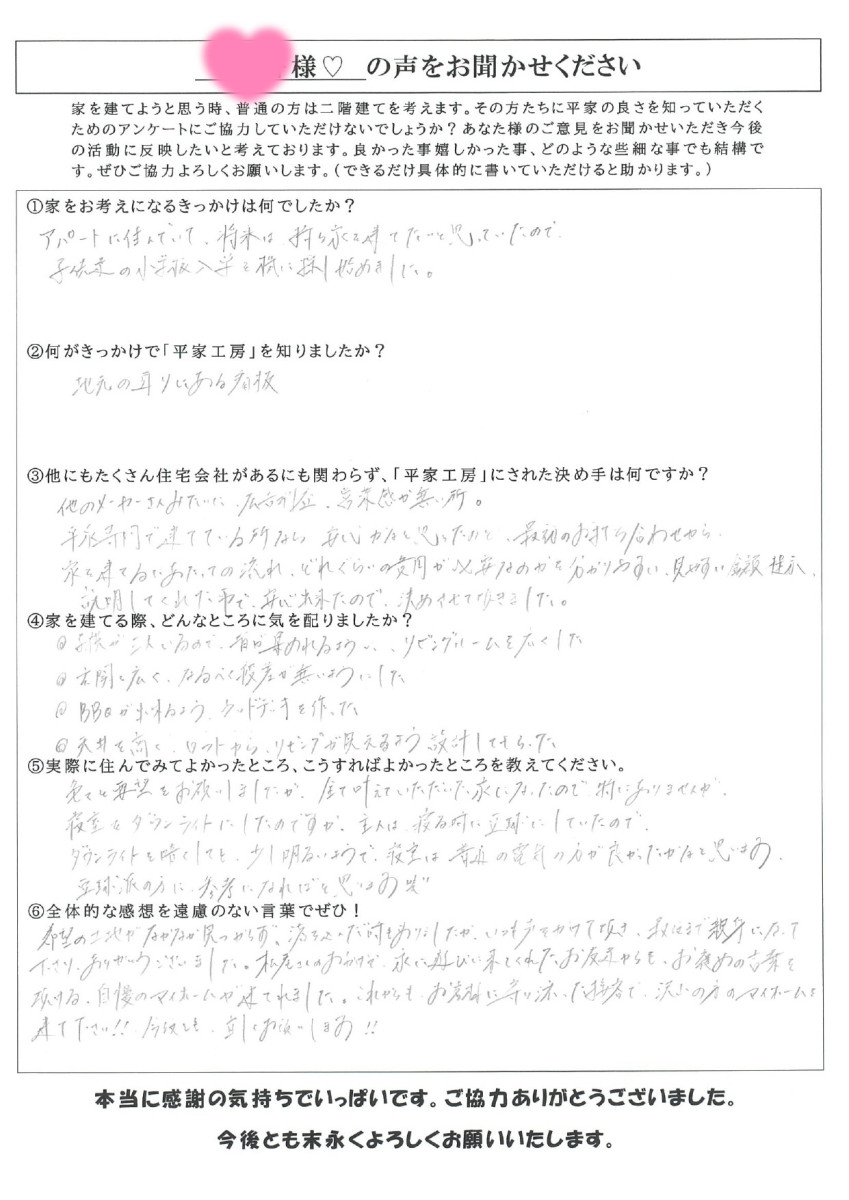 様♡ の声をお聞かせください
家を建てようと思う時、普通の方は二階建てを考えます。その方たちに平家の良さを知っていただく
ためのアンケートにご協力していただけないでしょうか？あなた様のご意見をお聞かせいただき今後
の活動に反映したいと考えております。良かった事嬉しかった事、どのような些細な事でも結構で
す。ぜひご協力よろしくお願いします。（できるだけ具体的に書いていただけると助かります。）
①家をお考えになるきっかけは何でしたか？
アパートに住んでいて、将来は持ち家を建てたいと思っていたので
子供達の小学校入学を機に探し始めました。
②何がきっかけで「平家工房」を知りましたか？
地元の周りにある看板
③他にもたくさん住宅会社があるにも関わらず、「平家工房」にされた決め手は何ですか？
他のメーカーさんみたいに、営業感が無い所。
平家専門で建てている所なら安心かなと思いたのと、最初のお打ち合わせから
家を建てるにあたっての流れ、どれぐらいの費用が必要なのかを分かりやすい、見やすい金額提示、
説明してくれた事で、安心出来たので、決めさせて頂きました。
④家を建てる際、どんなところに気を配りましたか？
子供が三人いるので、皆が集まれるよう リビングルームを広くした
玄関を広く、なるべく段差が無いようにした
BBQが出来るよう、ウッドデッキを作った
天井を高く、ロフトから、リビングが見えるよう設計してもらった
⑤実際に住んでみてよかったところ、こうすればよかったところを教えてください。
色々と要望をお願いしましたが、全て叶えていただいた家になったので、特にありませんが、
寝室をダウンライトにしたのですが、主人は、寝る時に豆球にしていたので、
ダウンライトを暗くしても、少し明るいようで、寝室は普通の電気の方が良かったかなと思います。
豆球派の方に、参考になればと思います笑
⑥全体的な感想を遠慮のない言葉でぜひ！
希望の土地がなかなか見つからず、落ち込んだ時もありましたが、いつも声をかけて頂き、最後まで親身になって
下さり、ありがとうございました。松尾さんのおかげで、家に遊びに来てくれたお友達からも、お褒めの言葉を
頂ける、自慢のマイホームが建てれました。これからも、お客様に寄り添った接客で、沢山の方のマイホームを
建て下さい!! 今後とも、宜しくお願いします!!
本当に感謝の気持ちでいっぱいです。ご協力ありがとうございました。
今後とも末永くよろしくお願いいたします。